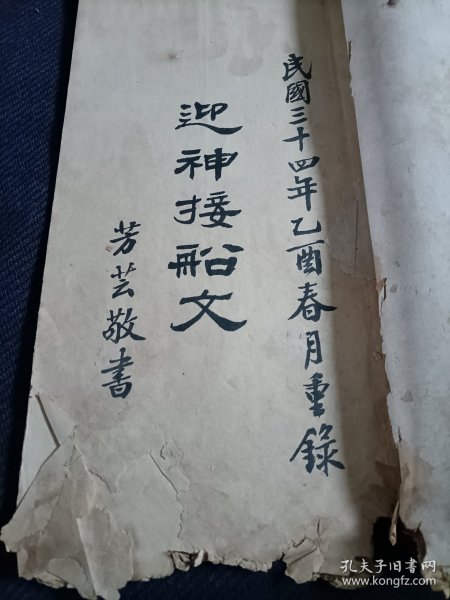 民國三十四年乙酉春月重錄
迎神接船文
芳芸敬書
孔夫子旧书网
www.kongfz.com